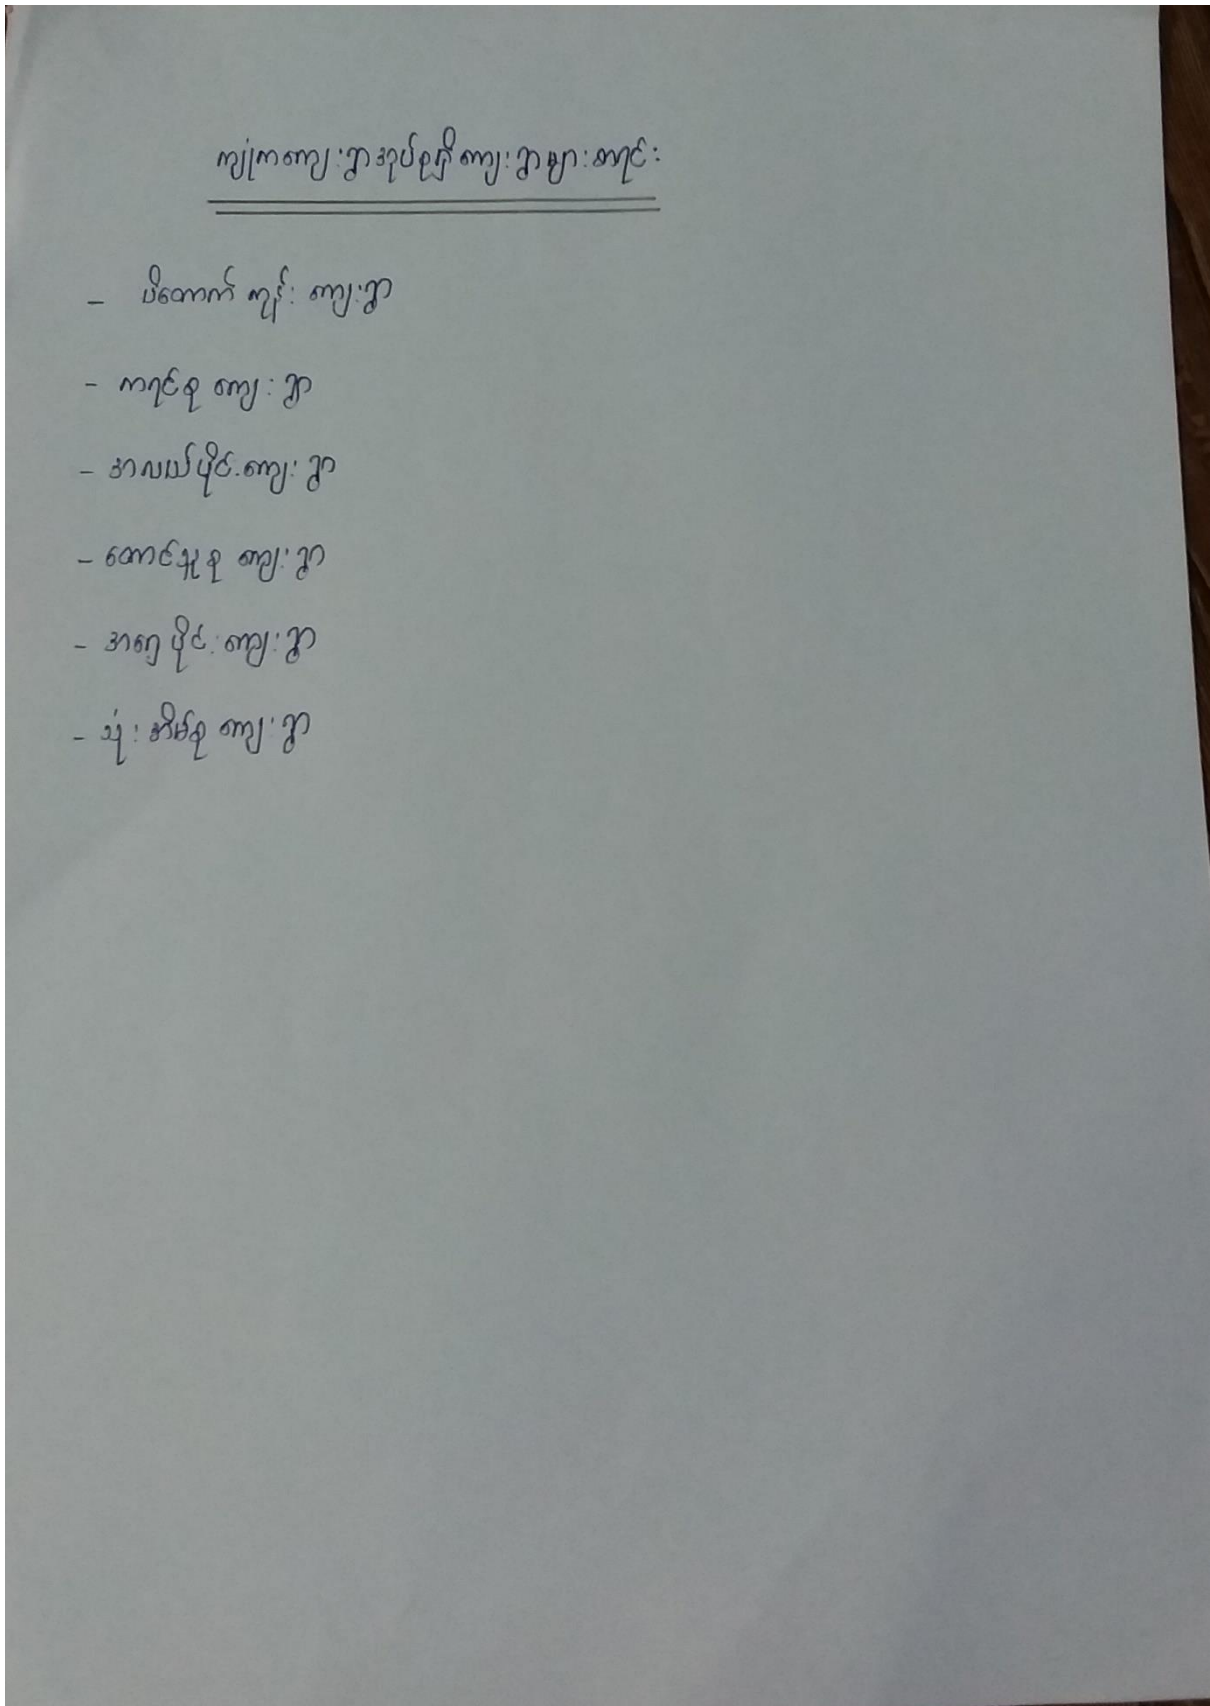 ကျုံကကျေးရွာအုပ်စုရှိကျေးရွာများစာရင်း
- ပိတောက်ကုန်း ကျေးရွာ
- ကရင်စု ကျေးရွာ
- အလယ်ပိုင်းကျေးရွာ
- တောင်သူစု ကျေးရွာ
- အရှေ့ပိုင်းကျေးရွာ
- သုံးအိမ်စု ကျေးရွာ